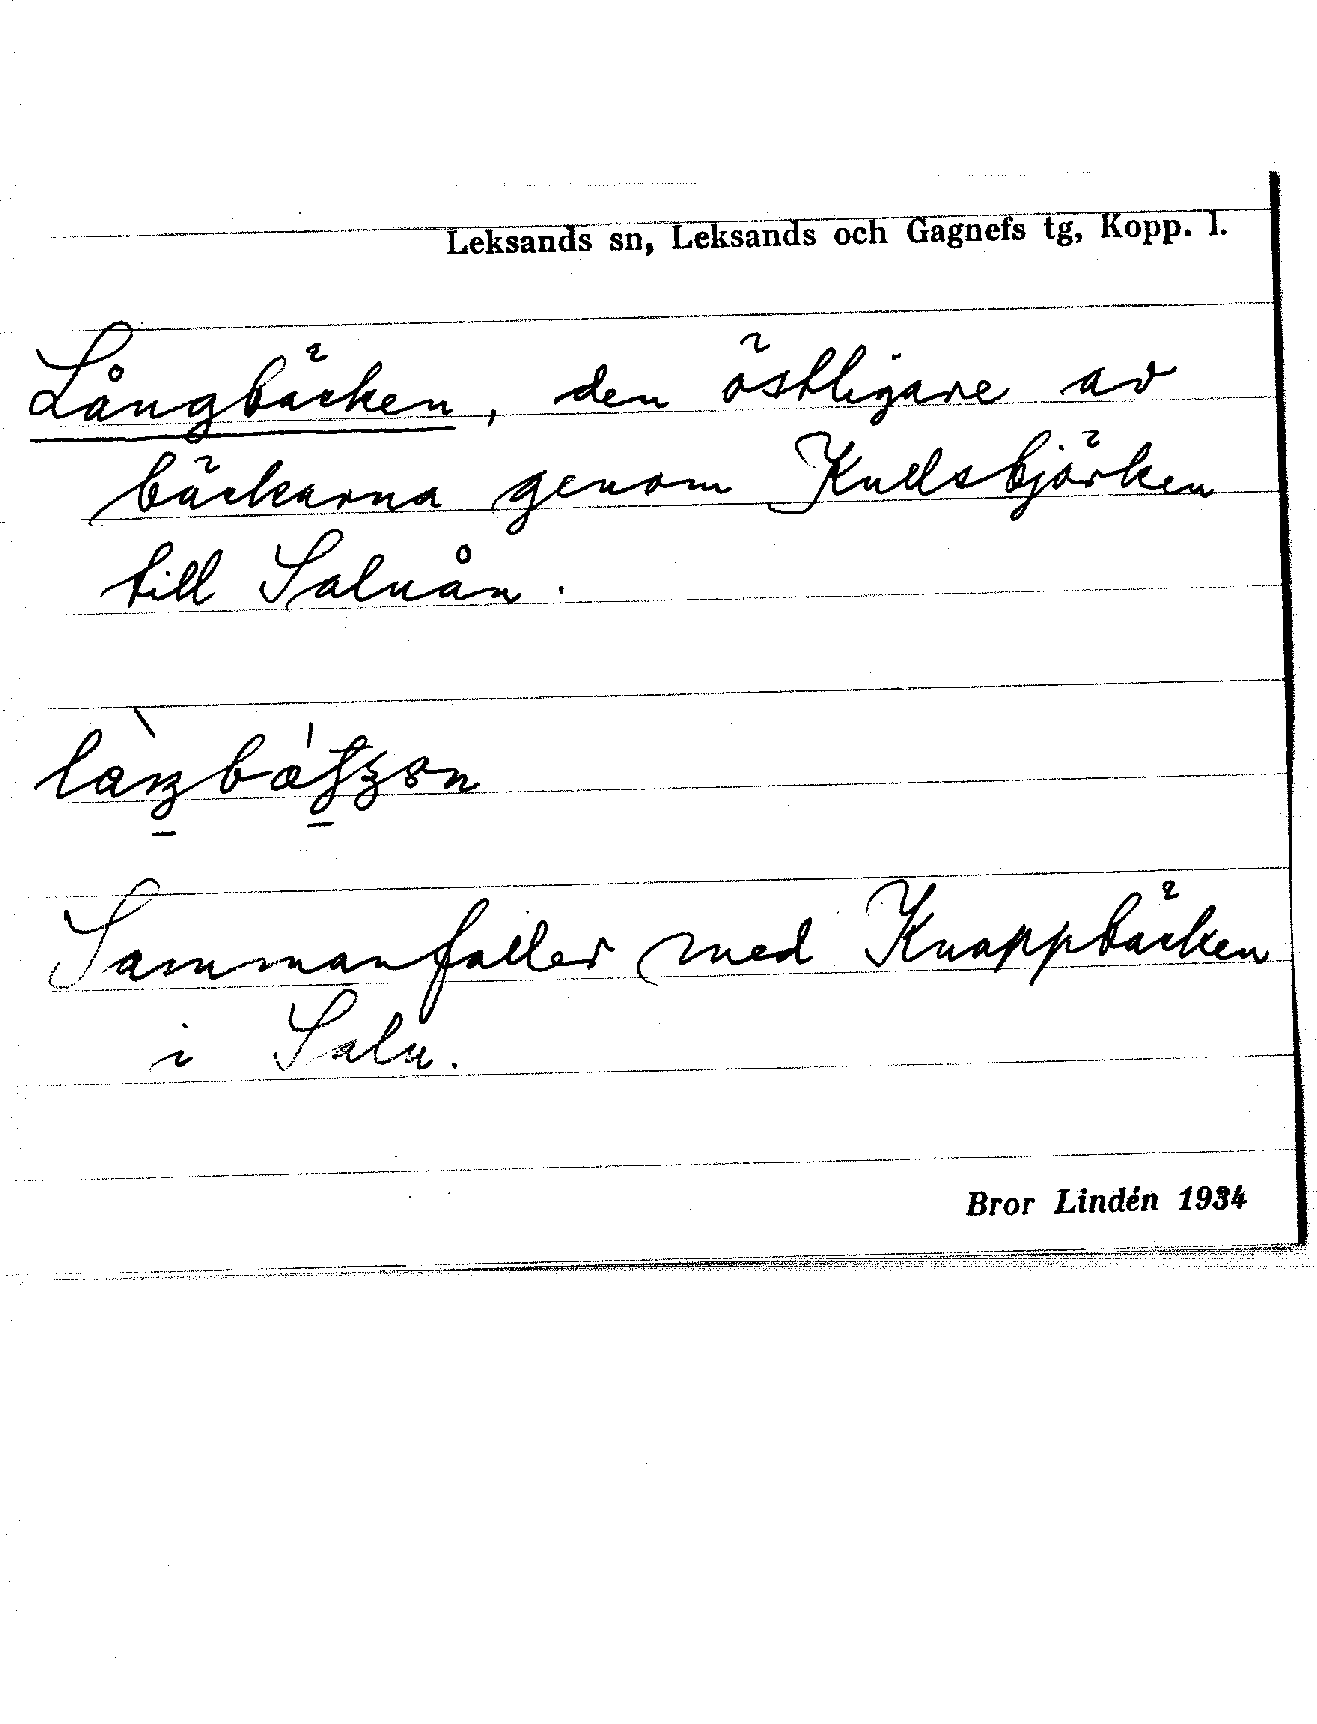 Leksands sn, Leksands och Gagnefs tg, Kopp. l.
Långbäcken, den östligare av
bäckarna genom Kullsbjörken
till Saluån.
Sammanfaller med Knappbäcken
i Salu.
Bror Lindén 1934